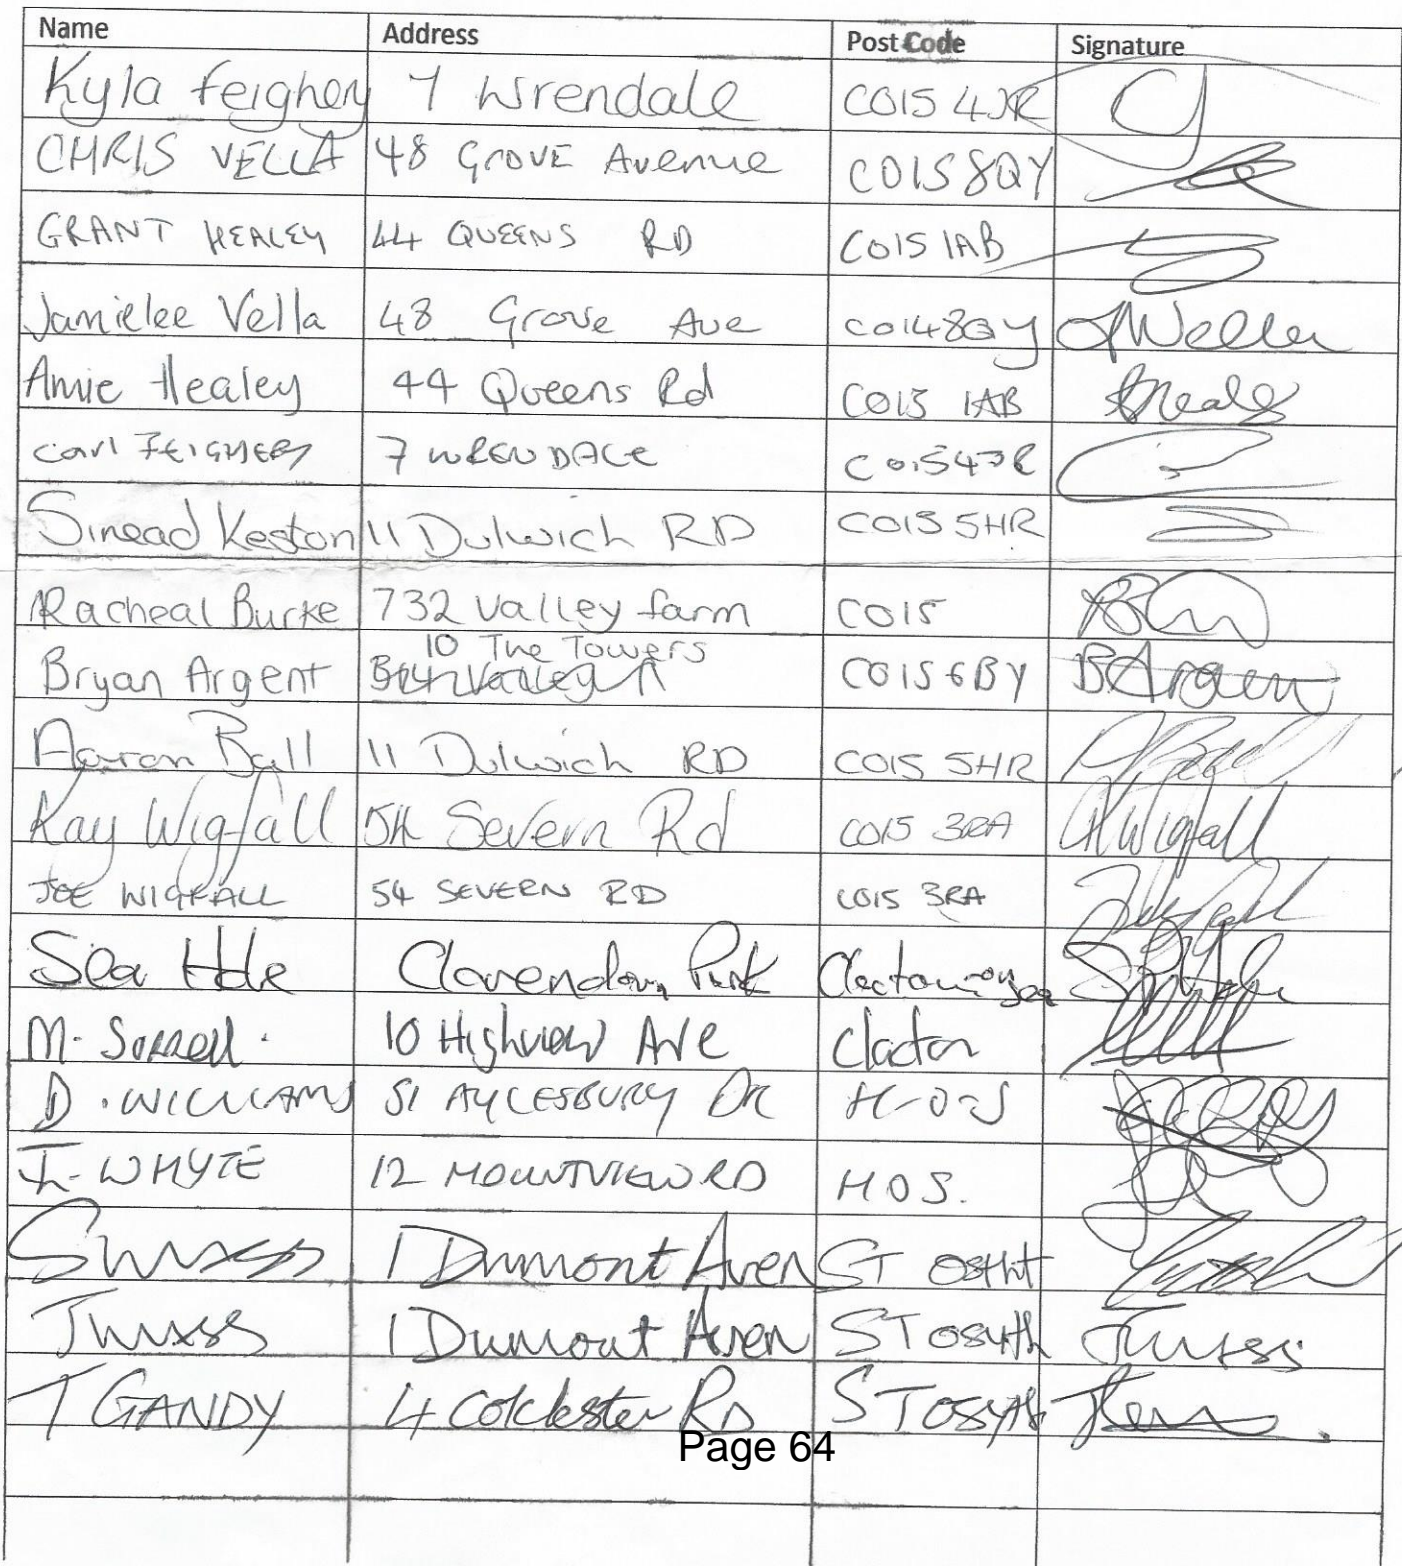 Name Address Post Code Signature
Kyla Feighery 7 Wrendale CO15 4JR
CHRIS VELLA 48 GROVE Avenue CO15 8QY
GRANT HEALEY 44 QUEENS RD CO15 1AB
Jamielee Vella 48 Grove Ave CO14 8QY JWeller
Amie Healey 44 Queens Rd CO15 1AB AHealey
Carl FEIGHERY 7 WRENDALE CO15 4JR
Sinead Keston 11 Dulwich RD CO15 5HR
Racheal Burke 732 Valley farm CO15
10 The Towers
Bryan Argent CO15 6BY BArgent
Aaron Ball 11 Dulwich RD CO15 5HR A Ball
Kay Wigfall 54 Severn Rd CO15 3RA KWigfall
JOE WIGFALL 54 SEVERN RD CO15 3RA
Clarendon Park Clacton on Sea
M. Sorrell. 10 Highview Ave Clacton
D. WILLIAMS 51 AYLESBURY DR H-O-S
I. WHYTE 12 MOUNTVIEW RD H O S.
1 Dumont Aven ST Osyth
1 Dumont Aven ST Osyth
T GANDY 4 Colchester RD ST Osyth
Page 64